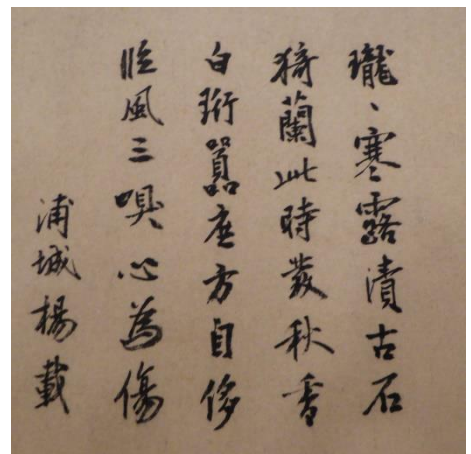 瓏、寒露漬古石
猗蘭此時發秋香
白珩嚣庶方自侈
臨風三嗅心為傷
浦城楊載